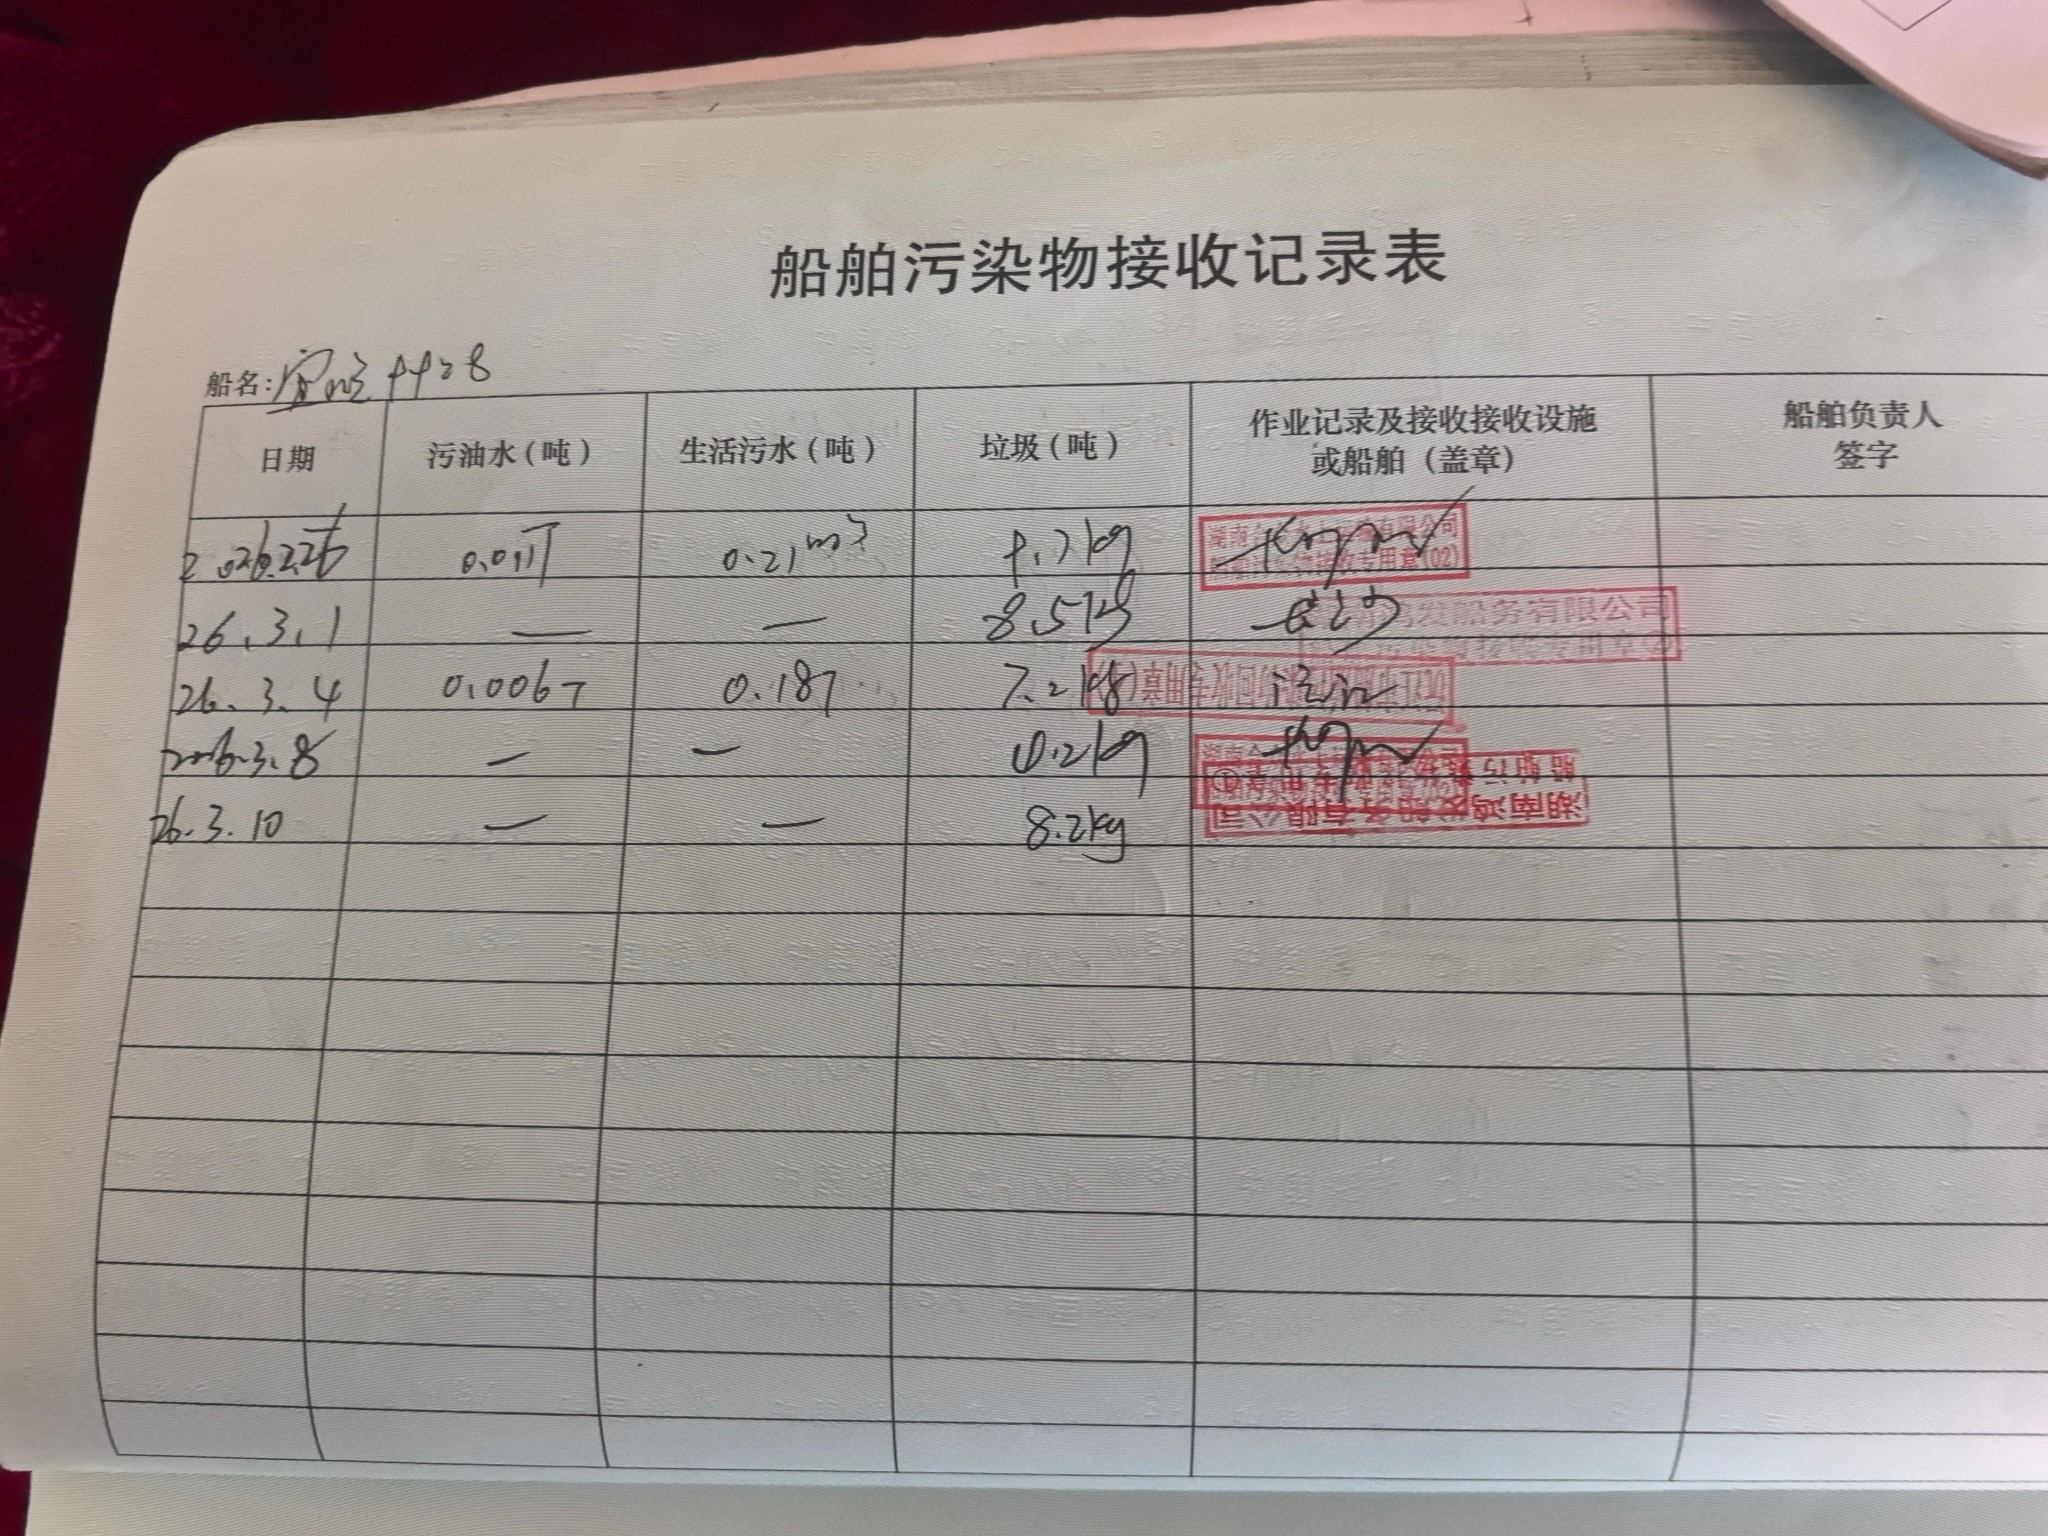 船舶污染物接收记录表
船名: 4428
日期 污油水(吨) 生活污水(吨) 垃圾(吨) 作业记录及接收接收设施或船舶(盖章) 船舶负责人签字
2026.2.26 0.01T 0.21m³ kg 湖南 水上 有限公司
船舶污染物接收专用章(02)
26.3.1 — — 8.5kg 长沙 鸿发船务有限公司
接收专用章
26.3.4 0.006T 0.18T 7.2kg 沅江
2026.3.8 — — kg
26.3.10 — — 8.2kg 湖南鸿发船务有限公司
船舶污